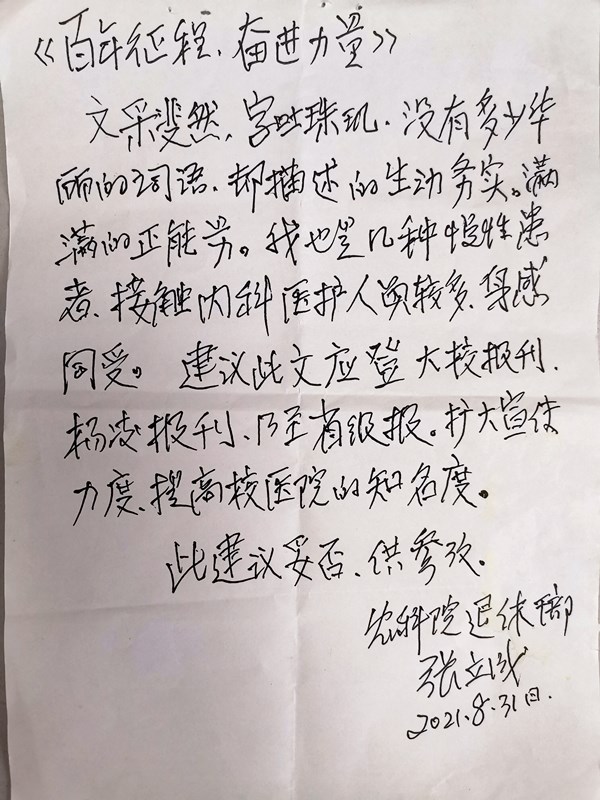 《百年征程、奋进力量》
文采斐然，字咇珠玑、没有多少华
丽的词语、却描述的生动务实。满
满的正能量。我也是几种慢性患
者、接触内科医护人员较多、身感
同受。建议此文应登大校报刊、
杨凌报刊、乃至省级报。扩大宣传
力度、提高校医院的知名度。
此建议妥否、供参考。
农科院退休干部
张立
2021.8.31日.